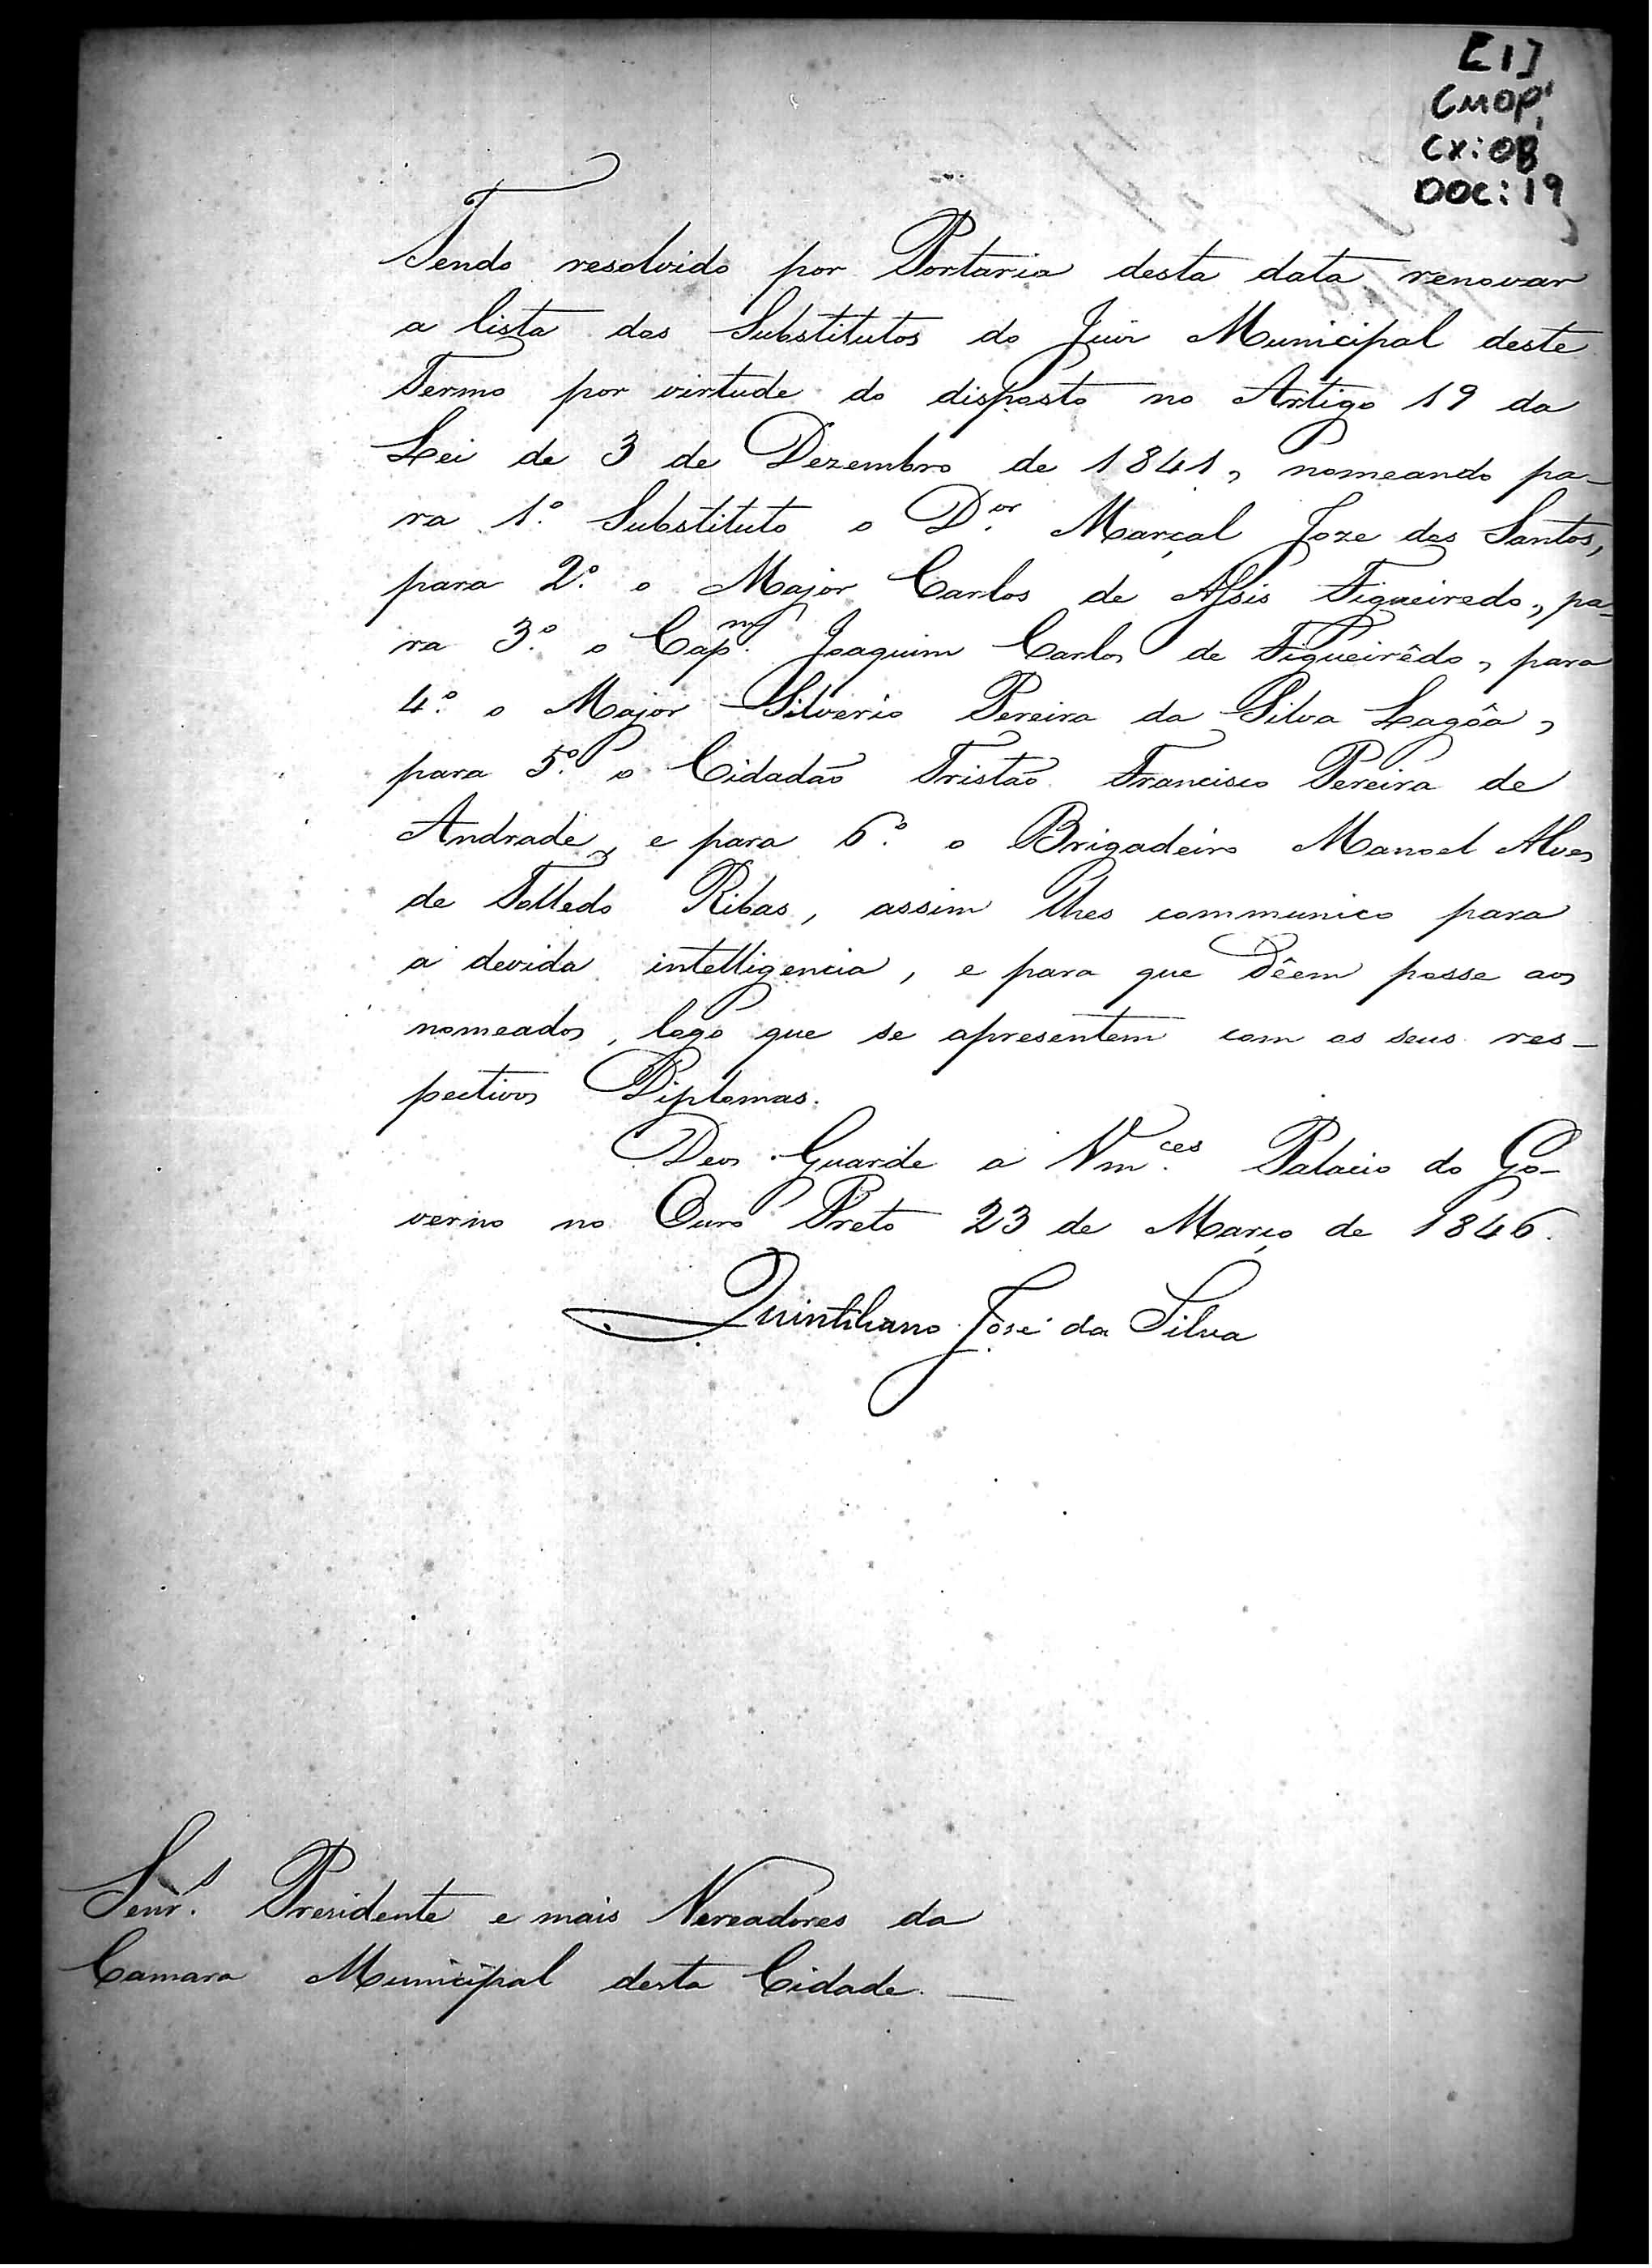 [1]
CMOP
CX: 08
DOC: 19
Tendo resolvido por Portaria desta data renovar
a lista dos Substitutos do Juiz Municipal deste
Termo por virtude do disposto no Artigo 19 da
Lei de 3 de Dezembro de 1841, nomeando pa-
ra 1.º Substituto o D.or Marçal Joze dos Santos,
para 2.º o Major Carlos de Assis Figueiredo, pa-
ra 3.º o Cap.m Joaquim Carlos de Figueirêdo, para
4.º o Major Silverio Pereira da Silva Lagôa,
para 5.º o Cidadão Tristão Francisco Pereira de
Andrade, e para 6.º o Brigadeiro Manoel Alves
de Tolledo Ribas, assim lhes communico para
a devida intelligencia, e para que dêem posse aos
nomeados, logo que se apresentem com os seus res-
pectivos Diplomas.
Deos Guarde a Vm.ces Palacio do Go-
verno no Ouro Preto 23 de Março de 1846.
Quintiliano José da Silva
Senr.s Presidente e mais Vereadores da
Camara Municipal desta Cidade. —